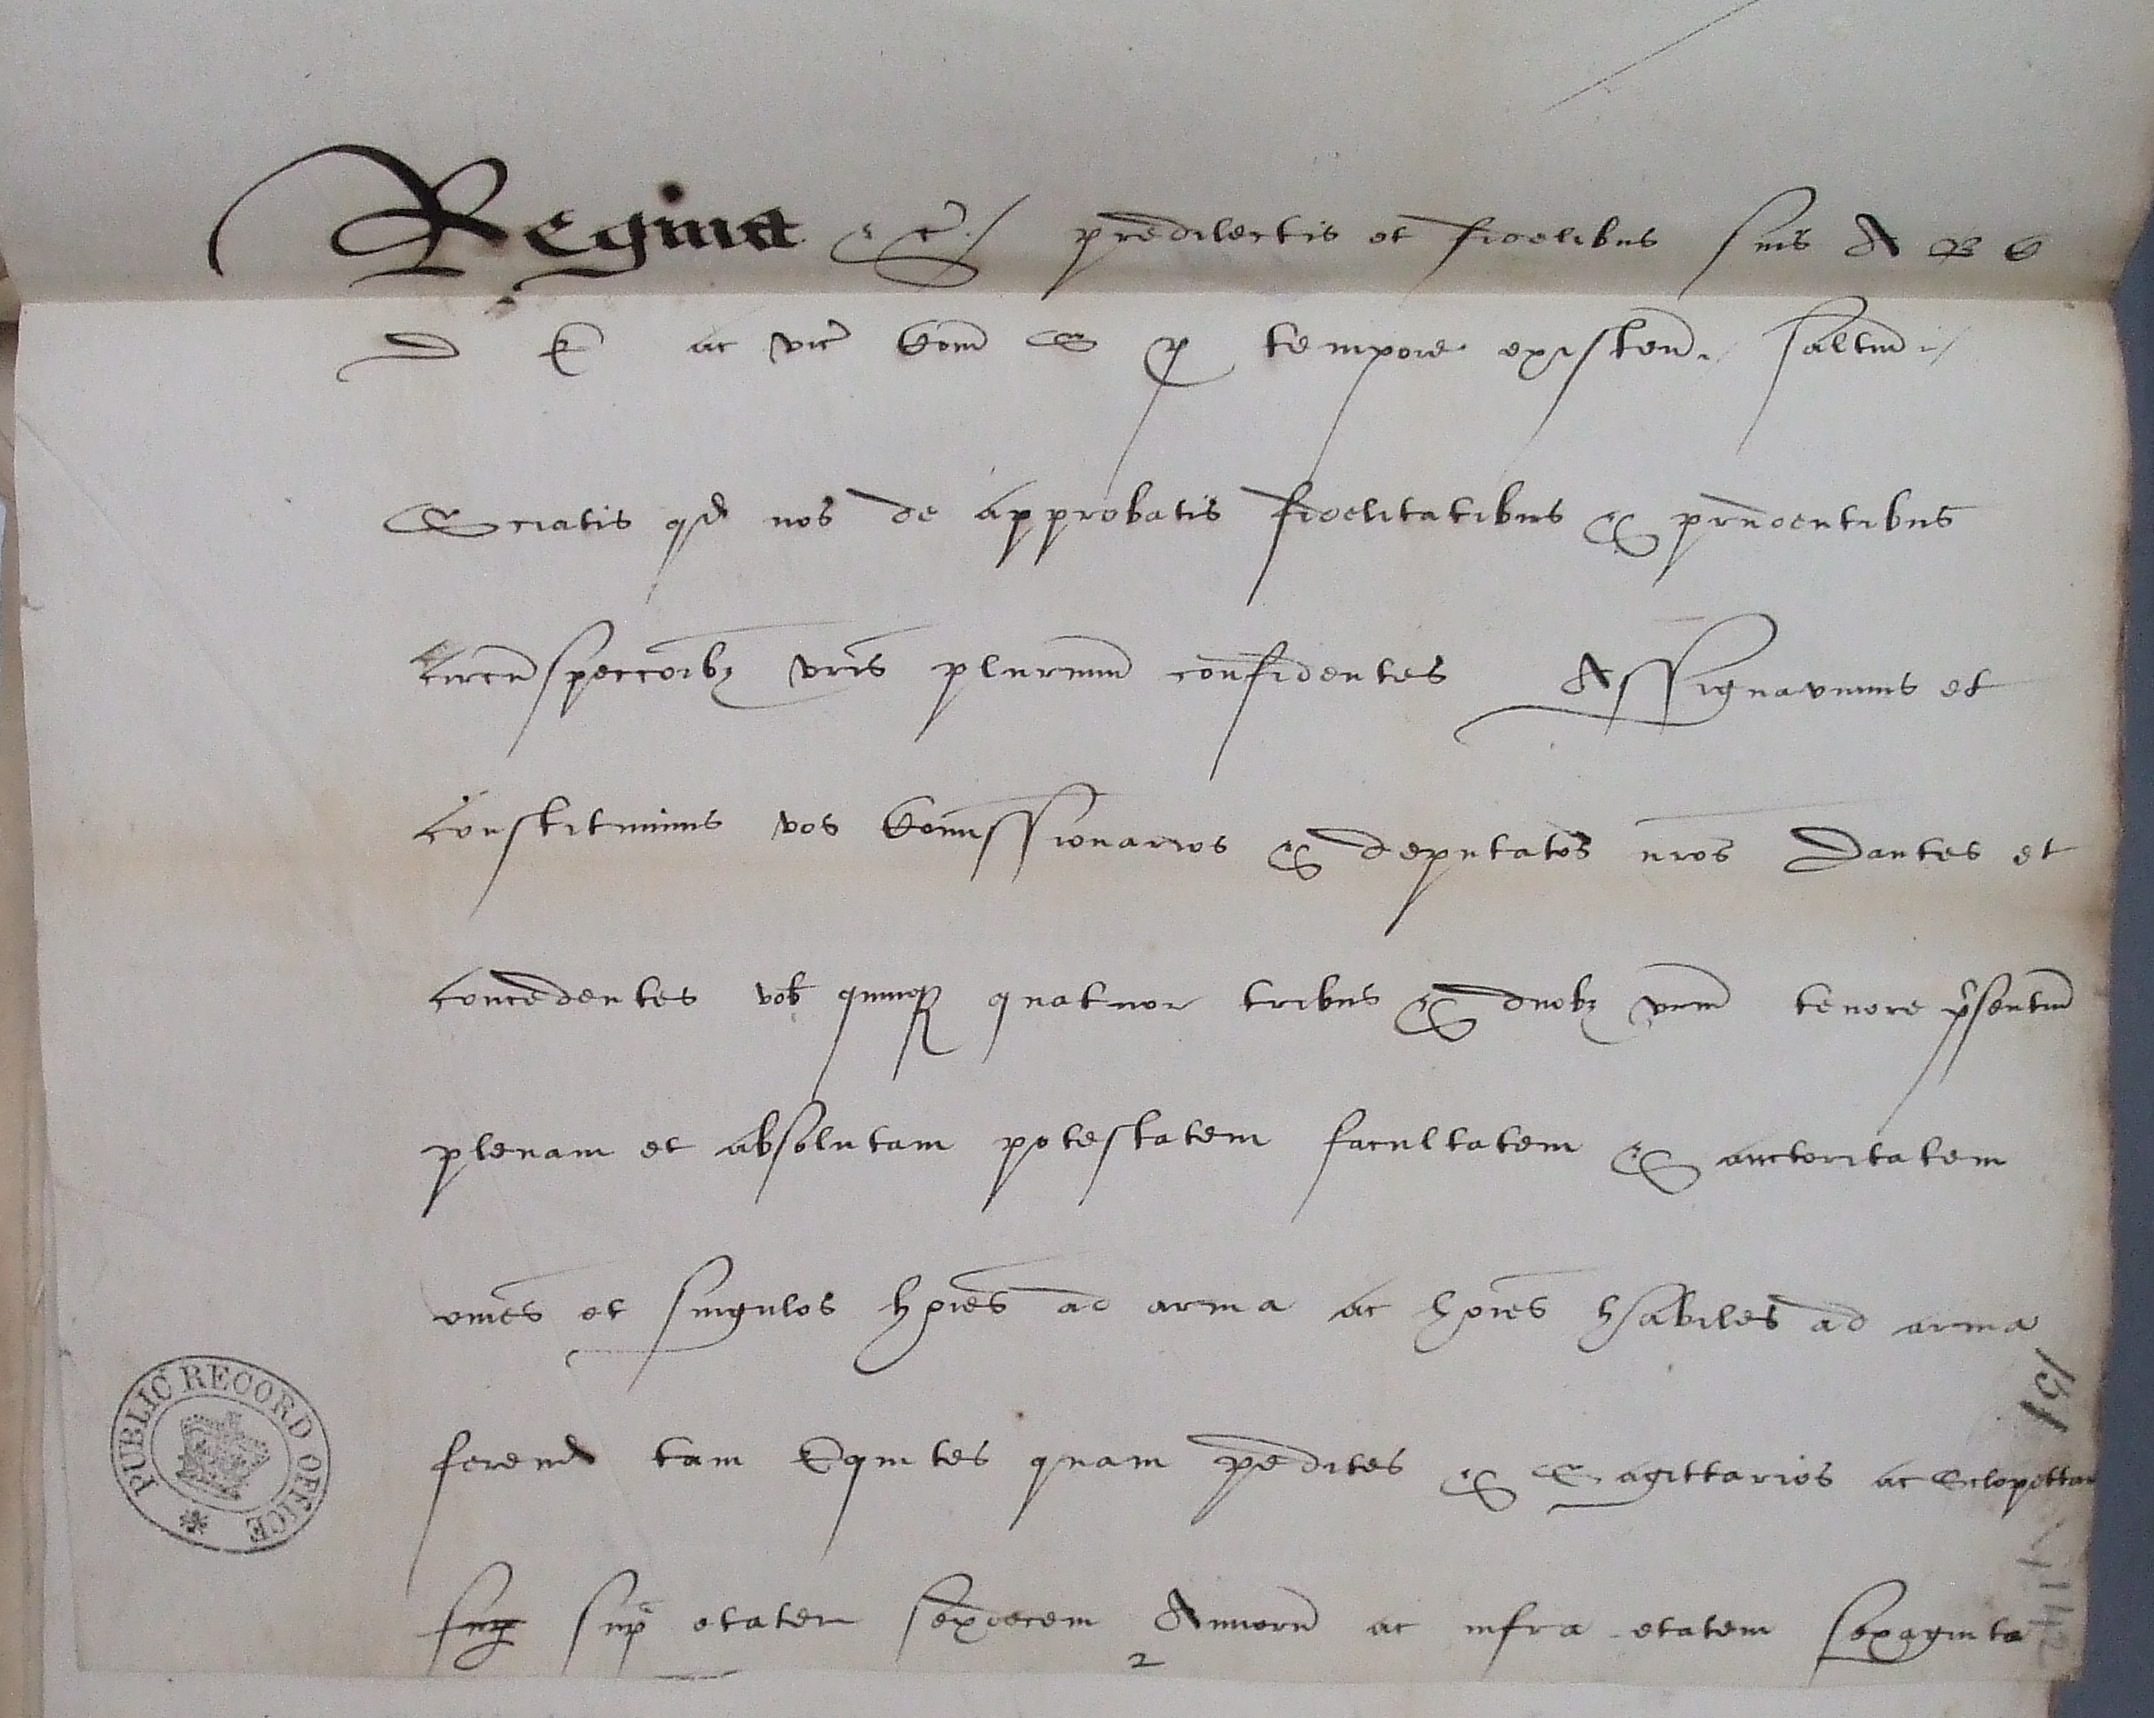 Regina &c̃./ predilectis et fidelibus suis A B C
D E ac vic̃ Com̃ S p tempore existen̄./ salt̄m./
Sciatis qd nos de approbatis fidelitatibus & prudentibus
Circũspeccõibz vr̃is plurimũ confidentes Assignavimus et
Constituimus vos Com̃issionarios & deputatos nr̃os Dantes et
concedentes vob quinqz quatuor tribus & duobz vr̃m tenore p̃sentiũ
plenam et absolutam potestatem facultatem & auctoritatem
om̃es et singulos hõies ad arma ac hõies habiles ad arma
ferend tam Equites quam pedites & Sagittarios ac Sclopettar
sup sup̃ etatem sexdecem Annorũ ac infra etatem sexaginta
2
PUBLIC RECORD OFFICE
151